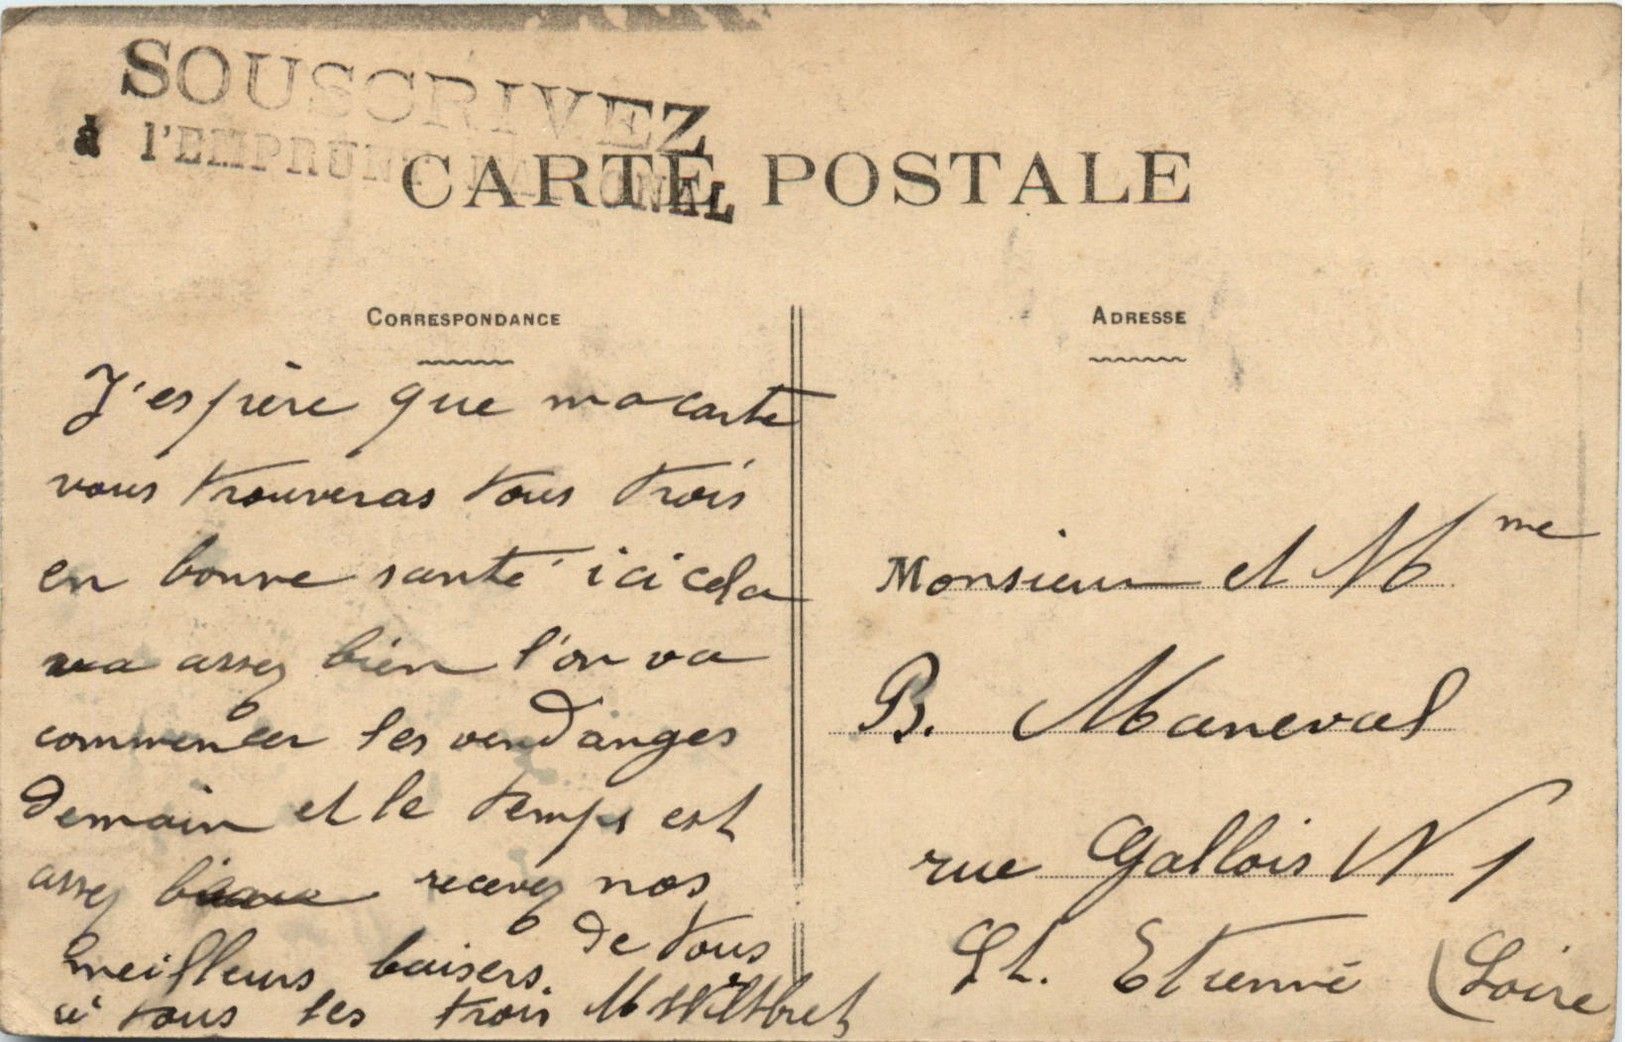 SOUSCRIVEZ
à l'EMPRUNT NATIONAL
CARTE POSTALE
CORRESPONDANCE
J'espère que ma carte
vous trouveras tous trois
en bonne santé ici cela
va assez bien l'on va
commencer les vendanges
demain et le temps est
assez beau recevez nos
meilleurs baisers. de tous
à tous les trois
ADRESSE
Monsieur et Mme
B. Maneval
rue Gallois N 1
St. Etienne (Loire